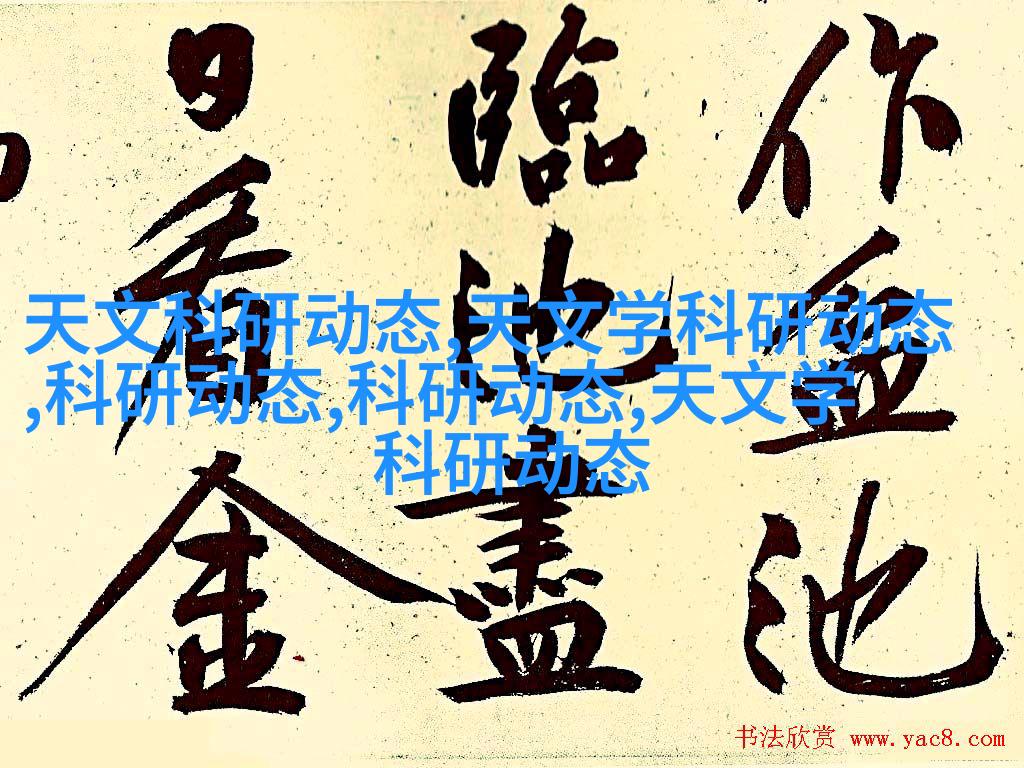 作盆池
臨池盡
日看金
天文科研动态,天文学科研动态
,科研动态,科研动态,天文学
科研动态
书法欣赏 www.yac8.com